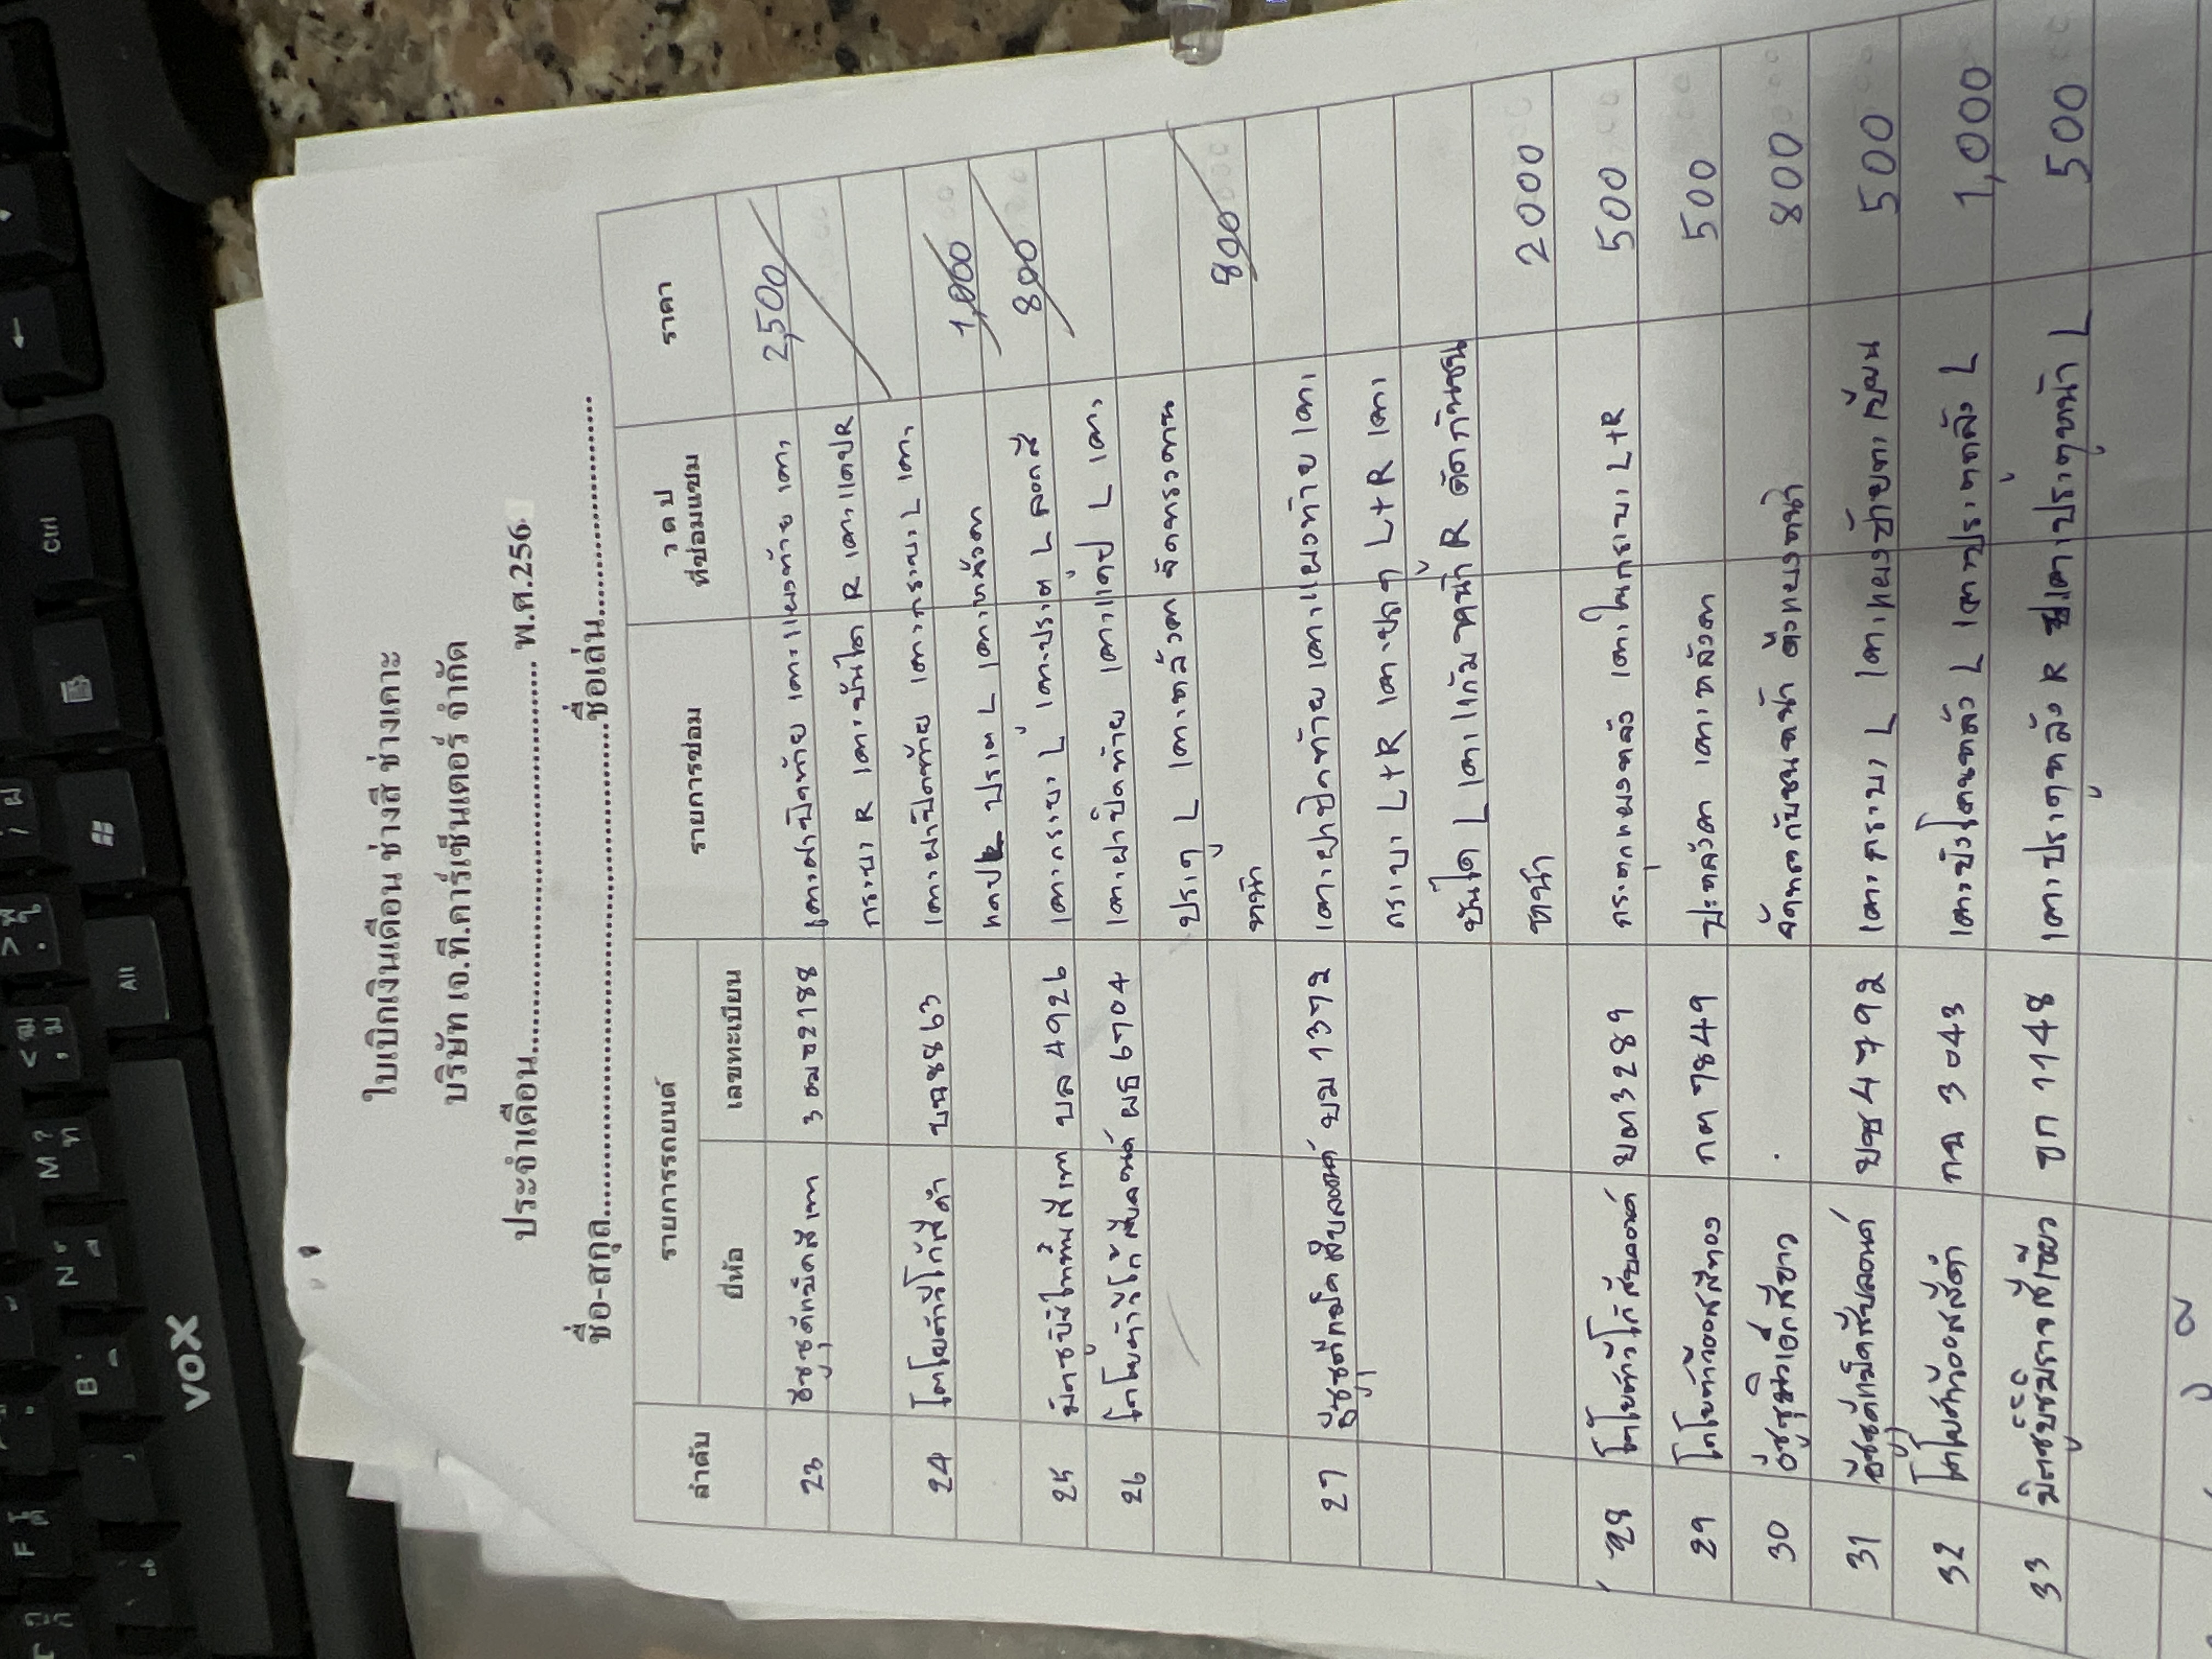 ใบเบิกเงินเดือน ช่างสี ช่างเคาะ
บริษัท เอ.ที.คาร์เซ็นเตอร์ จำกัด
ประจำเดือน.................................................... พ.ศ.256
ชื่อ-สกุล.................................................ชื่อเล่น...............................
ลำดับ รายการรถยนต์ รายการซ่อม ว ด ป ที่ซ่อมแซม ราคา
ยี่ห้อ เลขทะเบียน
23 อีซูซุดีแม็คสีเทา 3ฒฮ2188 เคาะฝาปิดท้าย เคาะแผงท้าย เคาะ 2,500
กระบะ R เคาะบันได R เคาะแคปR
24 โตโยต้าวีโก้สีดำ บฉ8863 เคาะฝาปิดท้าย เคาะกระบะ L เคาะ 1,000
แคป ประตู L เคาะหลังคา
25 มิตซูบิชิไททันสีเทา บล 4926 เคาะกระบะ L เคาะประตู L ลอกสี 800
26 โตโยต้าวีโก้สีบลอนด์ ผธ 6704 เคาะฝาปิดท้าย เคาะแค้ป L เคาะ
ประตู L เคาะหลังคา จัดทรวดทรง 800
หน้า
27 อีซูซุดีแม็คสีบลอนด์ บม 1372 เคาะฝาปิดท้าย เคาะแผงท้าย เคาะ
กระบะ L+R เคาะประตู L+R เคาะ
บันได L เคาะแก้ม หน้า R ดัดกันชน
หน้า 2000
28 โตโยต้าวีโก้สีบลอนด์ บต3289 กระตุกแผงหลัง เคาะในกระบะ L+R 500
29 โตโยต้าวีออสสีทอง กต 7849 ปะหลังคา เคาะหลังคา 500
30 อีซูซุมิวเอ็กสีขาว จัดทรงกับชนหน้า ดึงแผงหน้า 800
31 อีซูซุดีแม็คสีบลอนด์ บช 4792 เคาะกระบะ L เคาะแผงข้ายตาเขียน 500
32 โตโยต้าวีออสสีดำ กฉ 3043 เคาะบังโคลนหลัง L เคาะประตูหลัง L 1,000
33 มิตซูบิชิมิราจสีเขียว ขก 1148 เคาะประตูหลัง R เคาะประตูหน้า L 500
Ctrl
Alt
VOX